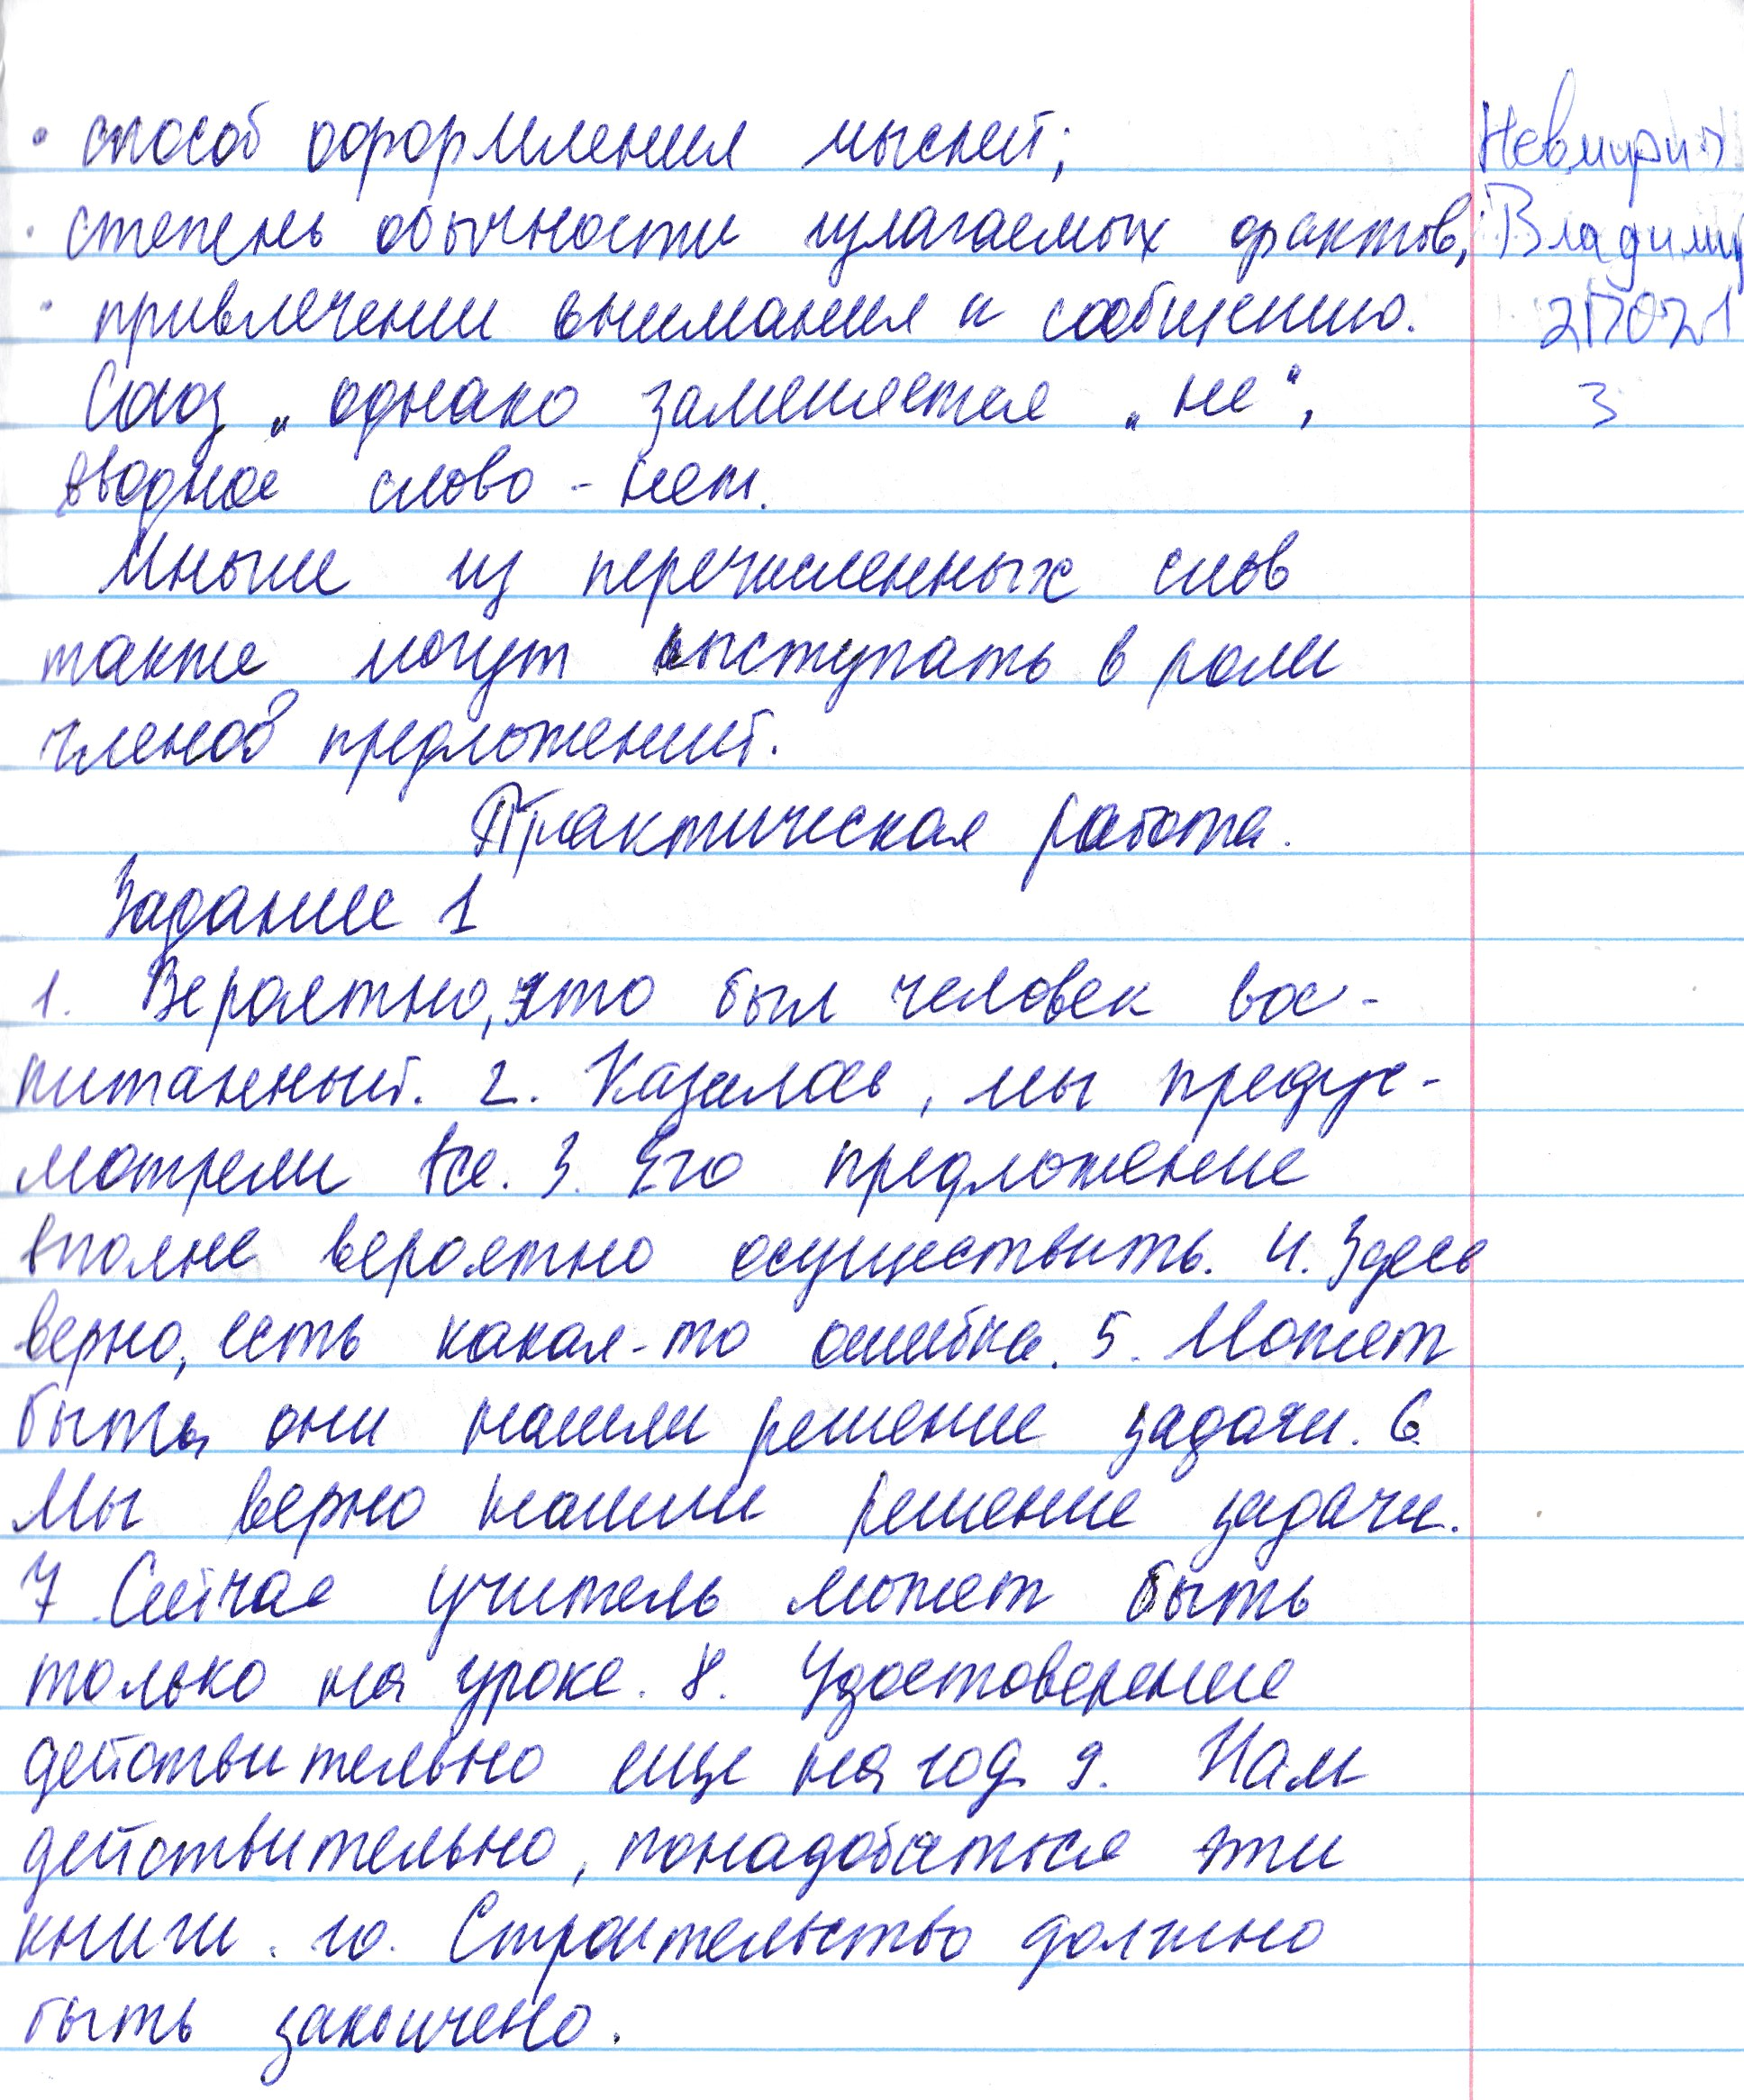 • способ оформления мыслей;
• степень обычности излагаемых фактов;
• привлечении внимания к сообщению.
Союз „однако заменяется „но“,
вводное слово - нет.
Многие из перечисленных слов
также могут выступать в роли
членов предложений.
Практическая работа.
Задание 1
1. Вероятно, это был человек вос-
питанный. 2. Казалось, мы предус-
мотрели все. 3. Его предложение
вполне вероятно осуществить. 4. Здесь
верно, есть какая-то ошибка. 5. Может
быть, они нашли решение задачи. 6.
Мы верно нашли решение задачи.
7. Сейчас учитель может быть
только на уроке. 8. Удостоверение
действительно еще на год. 9. Нам
действительно, понадобяться эти
книги. 10. Строительство должно
быть закончено.
Владимир
2П021
3